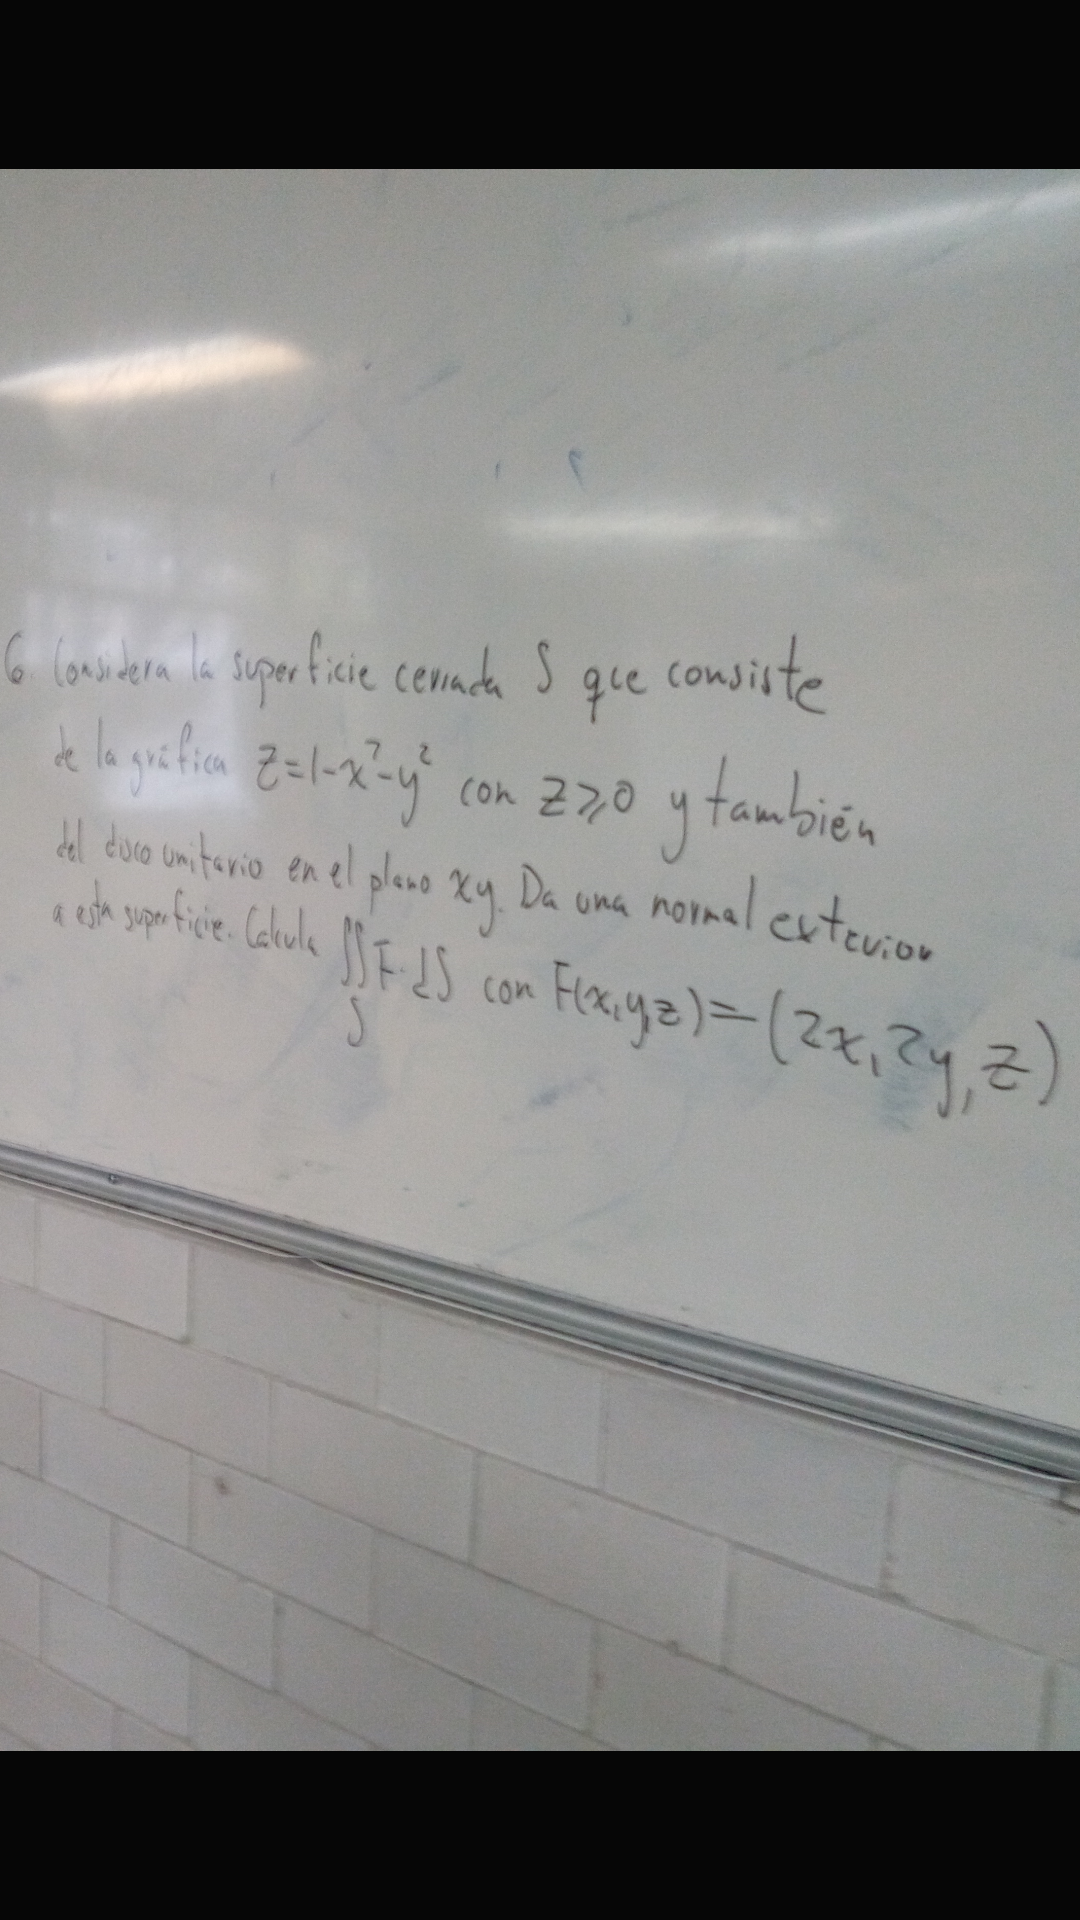 6. Considera la superficie cerrada S que consiste
de la gráfica z=1-x²-y² con z≥0 y también
del disco unitario en el plano xy. Da una normal exterior
a esta superficie. Calcula ∬_S F·dS con F(x,y,z)=(2x,2y,z)